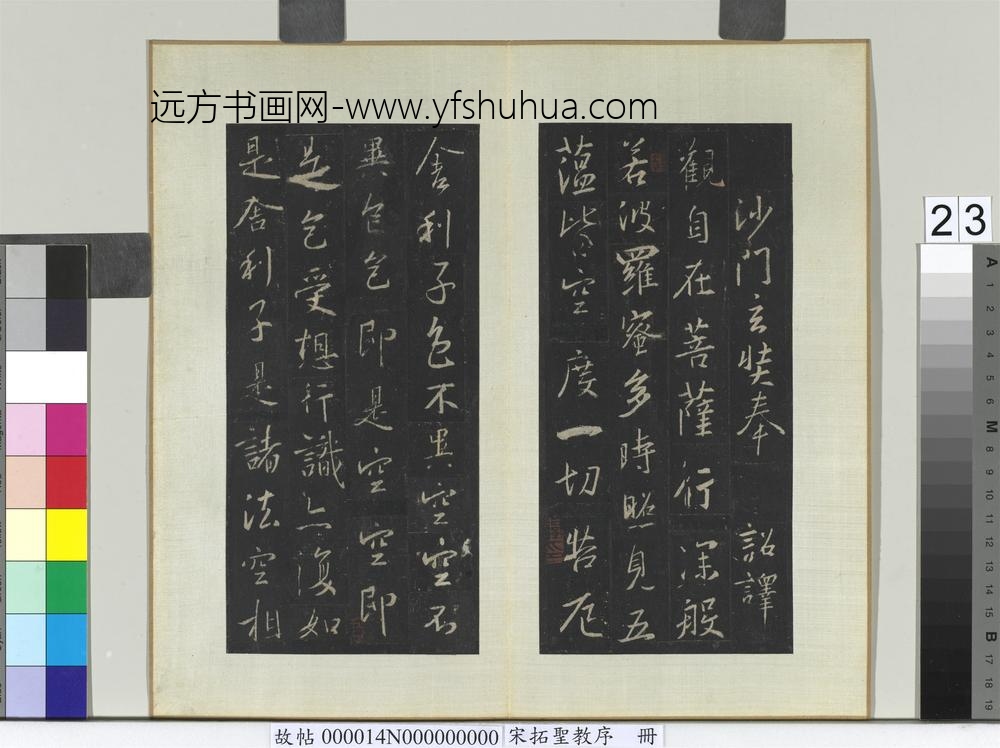 远方书画网-www.yfshuhua.com
沙門玄奘奉 詔譯
觀自在菩薩行深般
若波羅蜜多時照見五
蘊皆空度一切苦厄
舍利子色不異空空不
異色色即是空空即
是色受想行識亦復如
是舍利子是諸法空相
23
A
1
2
3
4
5
6
M
8
9
10
11
12
13
14
15
B
17
18
19
故帖 000014N000000000 宋拓聖教序 冊